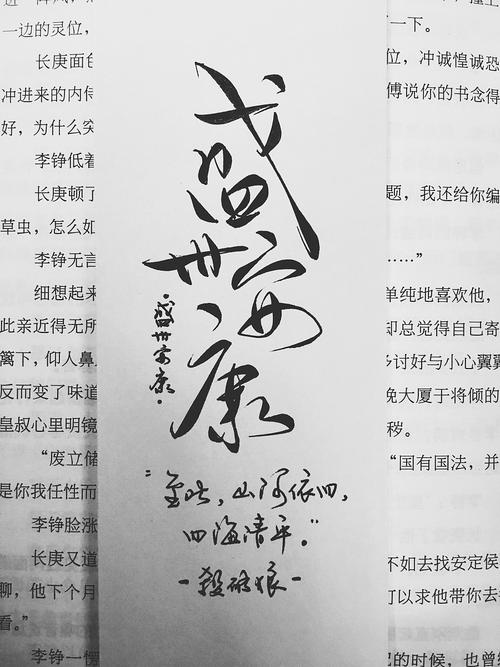 一边的灵位，
长庚面色
冲进来的内侍
好，为什么突
李铮低着
长庚顿了
草虫，怎么如
李铮无言
细想起来
此亲近得无所
篱下，仰人鼻
反而变了味道
皇叔心里明镜
“废立储
是你我任性而
李铮脸涨
长庚又道
聊，他下个月
看。”
李铮一愣
盛世安康
盛世安康
“至此，山河依旧，
四海清平。”
—殺破狼—
一下。
位，冲诚惶诚恐
傅说你的书念得
题，我还给你编
……”
单纯地喜欢他，
却总觉得自己寄
多讨好与小心翼
挽大厦于将倾的
秽。
“国有国法，并
不如去找安定侯
可以求他带你去
的时候，也曾